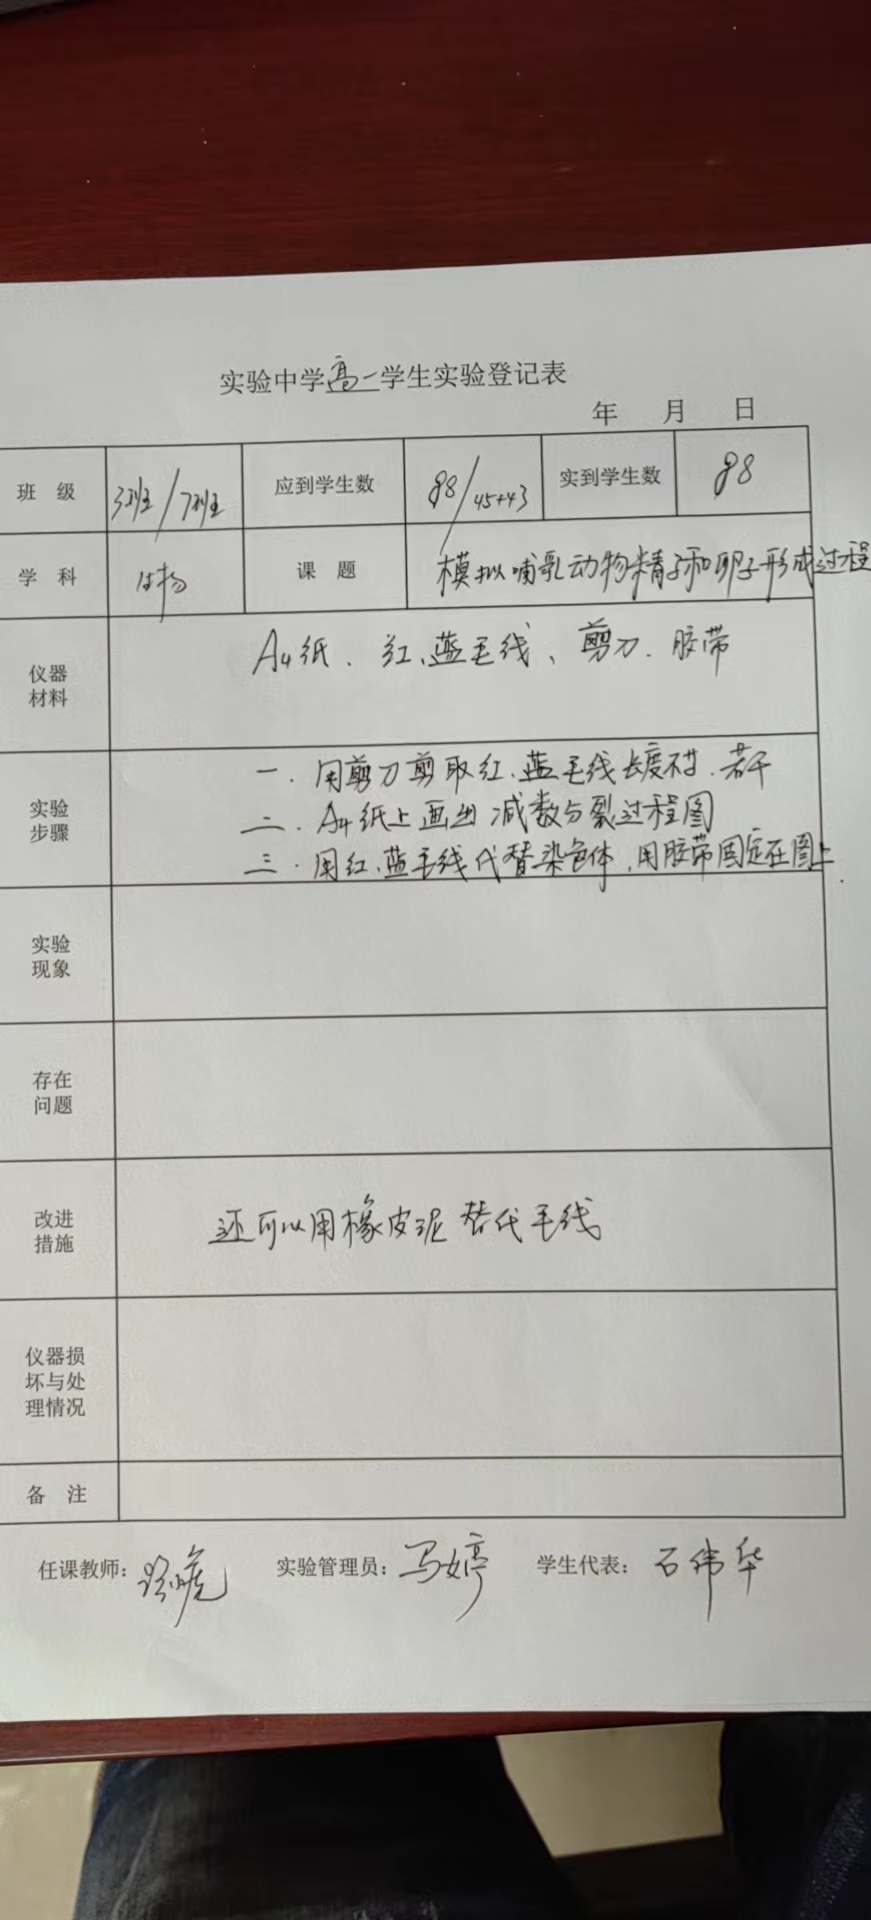 实验中学高一学生实验登记表
年 月 日
班 级 3班/7班 应到学生数 88/45+43 实到学生数 88
学 科 生物 课 题 模拟哺乳动物精子和卵子形成过程
仪器
材料
A4纸、红、蓝毛线、剪刀、胶带
实验
步骤
一、用剪刀剪取红、蓝毛线长度不等、若干
二、A4纸上画出减数分裂过程图
三、用红、蓝毛线代替染色体,用胶带固定在图上
实验
现象
存在
问题
改进
措施
还可以用橡皮泥替代毛线
仪器损
坏与处
理情况
备 注
任课教师: 实验管理员:马婷 学生代表:石伟华